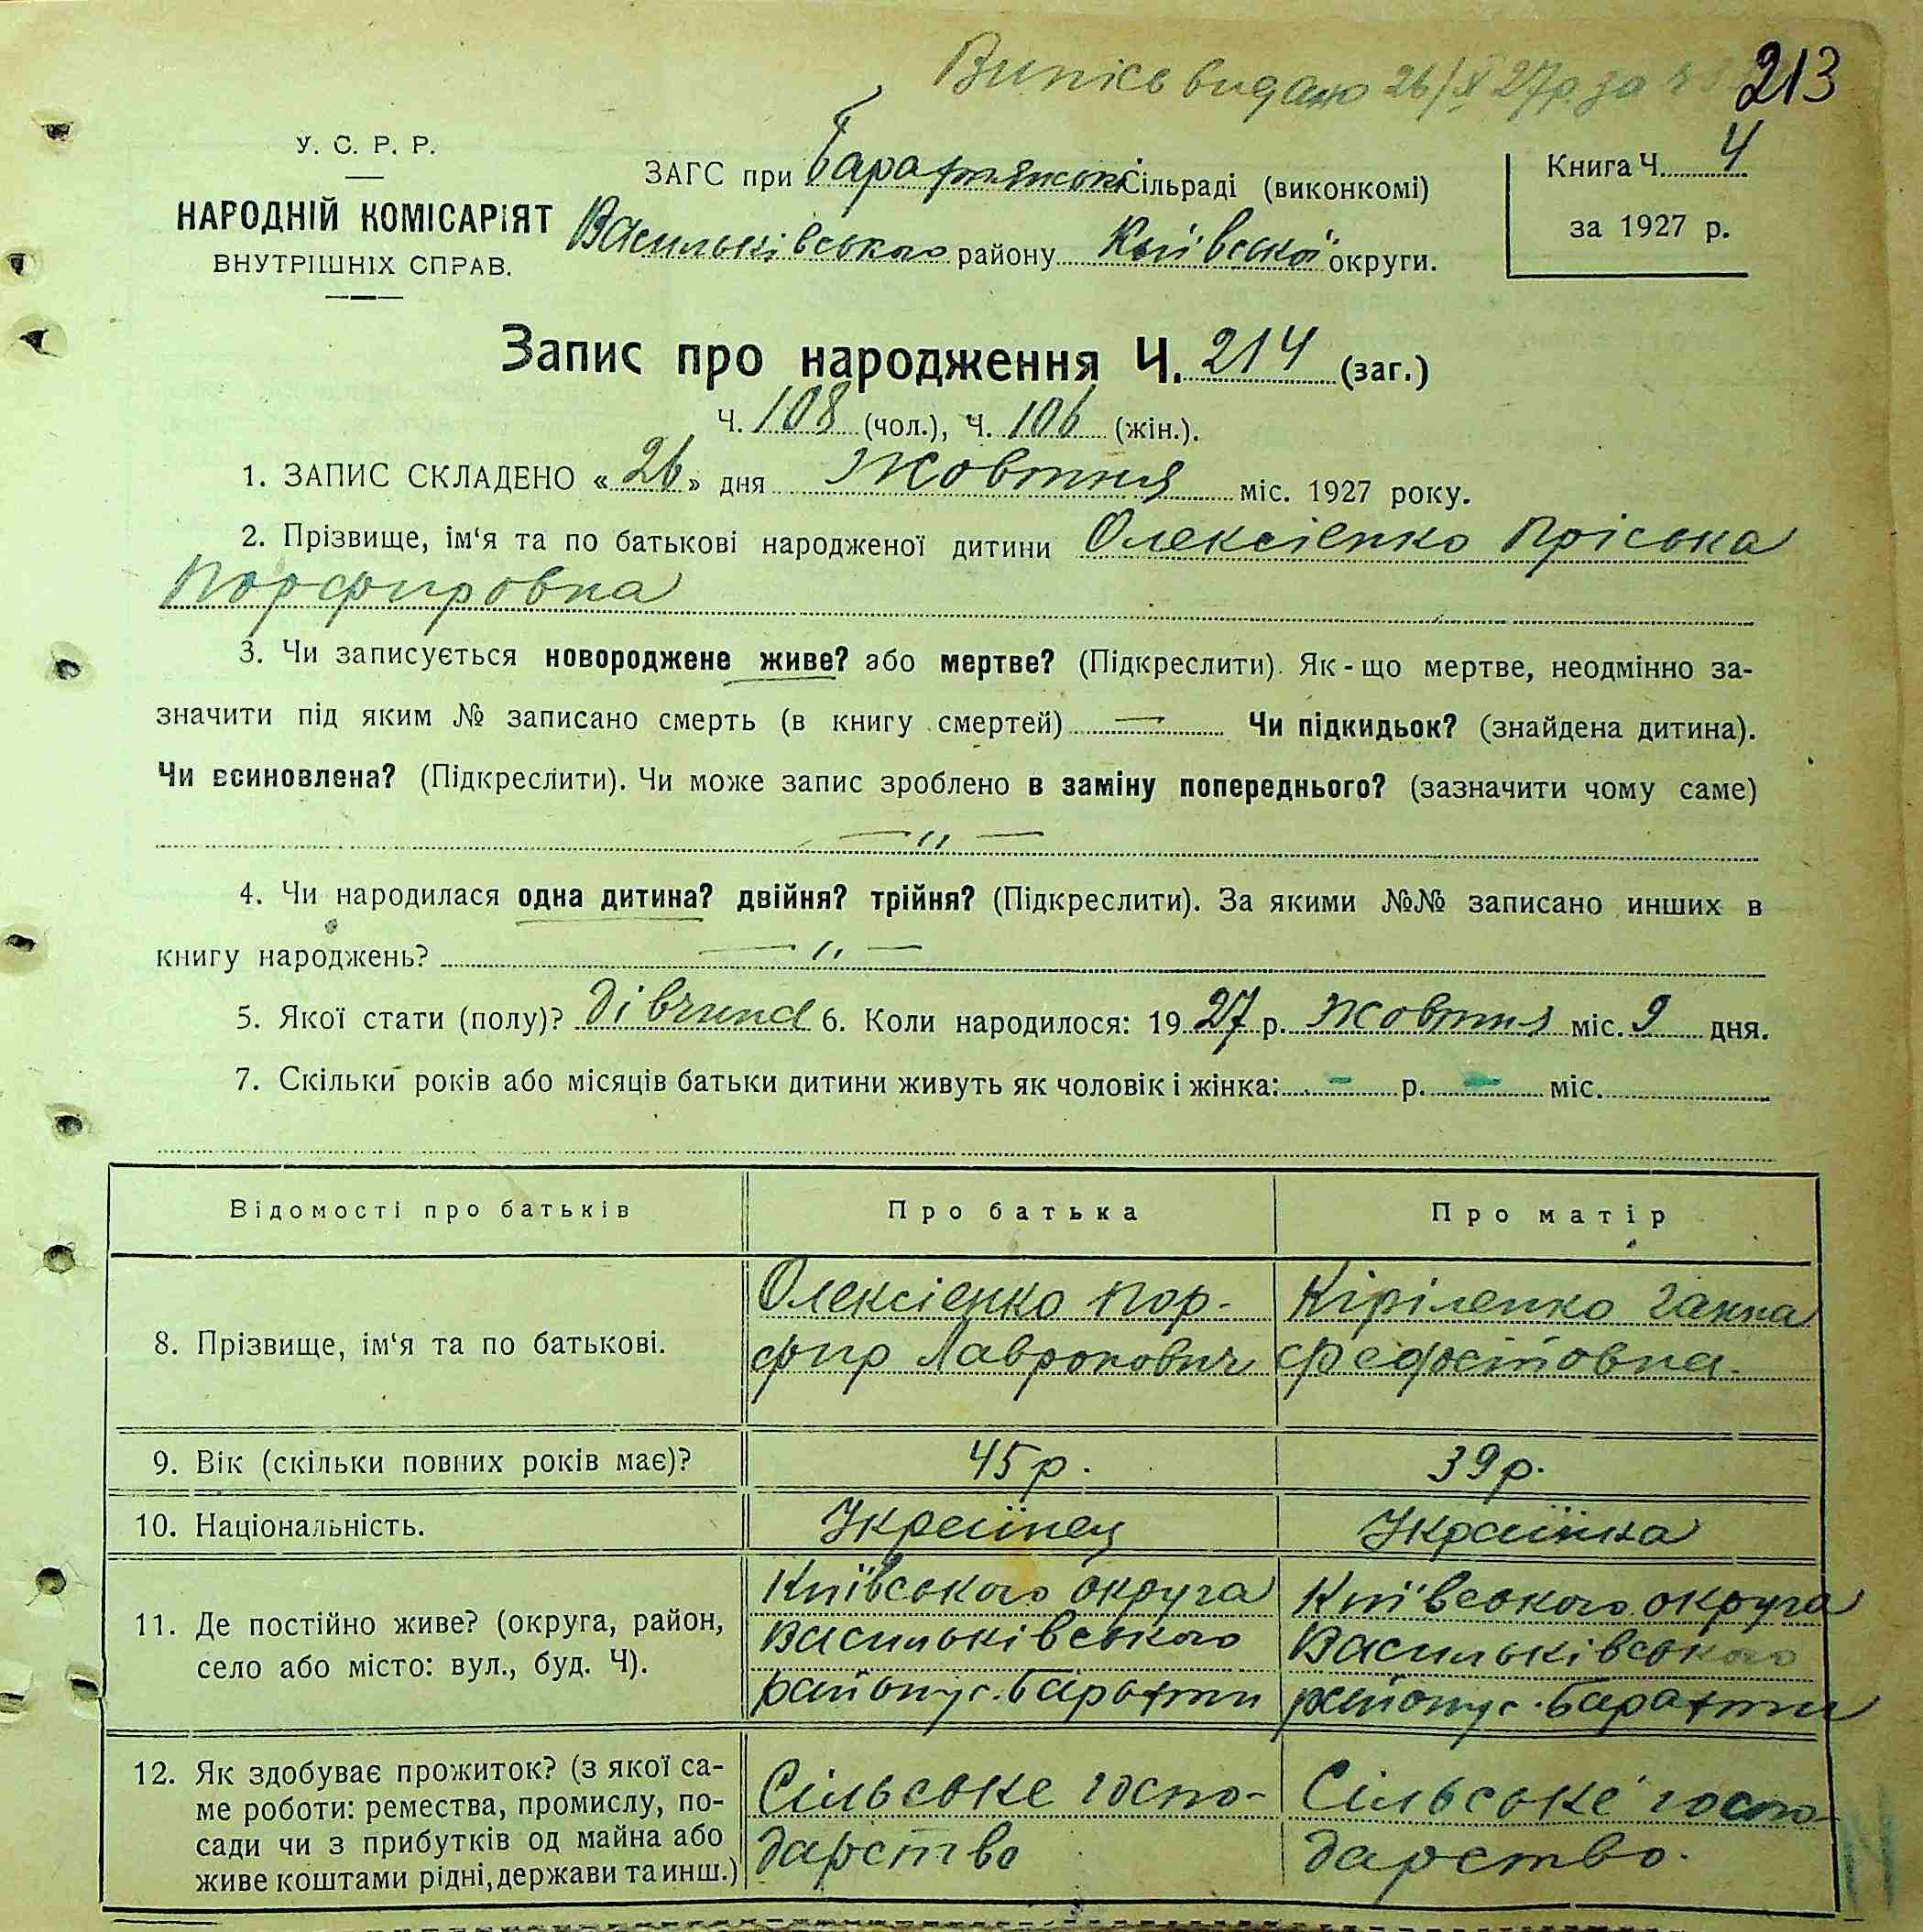 Випісь видано 26/X 27р за
213
У. С. Р. Р.
НАРОДНІЙ КОМІСАРІЯТ
ВНУТРІШНІХ СПРАВ.
ЗАГС при Барахтянській Сільраді (виконкомі)
Васильківського району Київської округи.
Книга Ч. 4
за 1927 р.
Запис про народження Ч. 214 (заг.)
Ч. 108 (чол.), Ч. 106 (жін.).
1. ЗАПИС СКЛАДЕНО « 26 » дня Жовтня міс. 1927 року.
2. Прізвище, ім'я та по батькові народженої дитини Олексієнко Пріська
Порфировна
3. Чи записується новороджене живе? або мертве? (Підкреслити). Як-що мертве, неодмінно за-
значити під яким № записано смерть (в книгу смертей) — Чи підкидьок? (знайдена дитина).
Чи всиновлена? (Підкреслити). Чи може запис зроблено в заміну попереднього? (зазначити чому саме)
— " —
4. Чи народилася одна дитина? двійня? трійня? (Підкреслити). За якими №№ записано инших в
книгу народжень? — " —
5. Якої стати (полу)? Дівчина 6. Коли народилося: 1927 р. Жовтня міс. 9 дня.
7. Скільки років або місяців батьки дитини живуть як чоловік і жінка: - р. - міс.
Відомості про батьків Про батька Про матір
8. Прізвище, ім'я та по батькові.
Олексієнко Пор-
фир Лавронович
Кіріленко Ганна
Федостовна.
9. Вік (скільки повних років має)? 45 р. 39 р.
10. Національність. Українец Українка
11. Де постійно живе? (округа, район,
село або місто: вул., буд. Ч).
Київського округа
Васильківського
району с. Барахти
Київського округа
Васильківського
району с. Барахти
12. Як здобуває прожиток? (з якої са-
ме роботи: ремества, промислу, по-
сади чи з прибутків од майна або
живе коштами рідні, держави та инш.)
Сільське госпо-
дарство
Сільське госпо-
дарство.